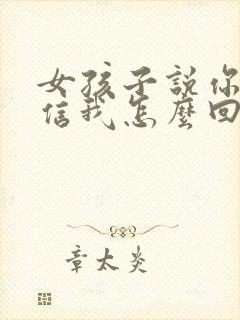 女孩子說你
信我怎麼回
章太炎